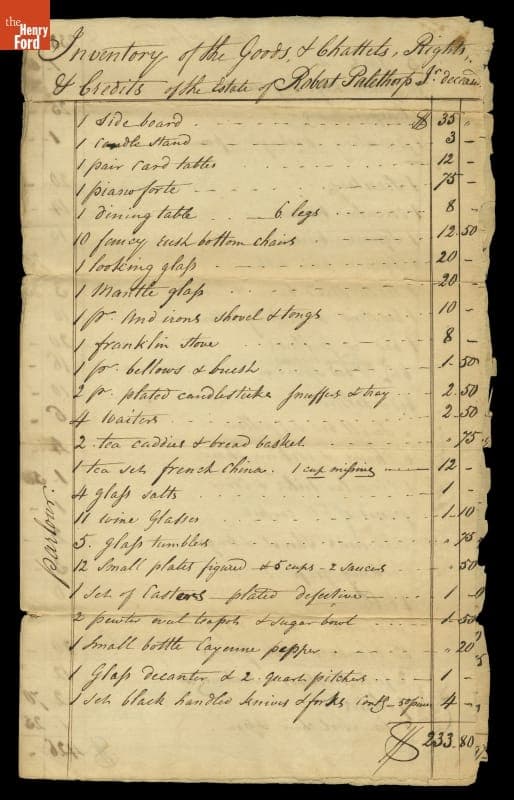 the
Henry
Ford
Inventory of the Goods, & Chattels, Rights,
& Credits of the Estate of Robert Palethorp Jr. deceased
1 Side board $ 35 "
1 candle stand 3 -
1 pair card tables 12 -
1 piano forte 75 -
1 dining table 6 legs 8 -
10 fancy rush bottom chairs 12.50
1 looking glass 20 -
1 Mantle glass 20 -
1 pr. And irons shovel & tongs 10 -
1 franklin stove 8 -
1 pr. bellows & brush 1.50
2 pr. plated candlesticks snuffers & tray 2.50
4 Waiters 2.50
2 tea caddies & bread basket " 75
1 tea set french China. 1 cup missing 12 -
4 glass salts 1 -
11 wine Glasses 1.10
5. glass tumblers " 75
12 Small plates figured & 5 cups - 2 saucers " 50
1 Set of Casters plated defective 1 -
2 pewter oval teapots & sugar bowl 1.50
1 Small bottle Cayenne pepper " 20
1 Glass decanter & 2 quart pitchers 1 -
1 set black handled knives & forks contg 50 pieces 4 -
parlour.
$ 233.80